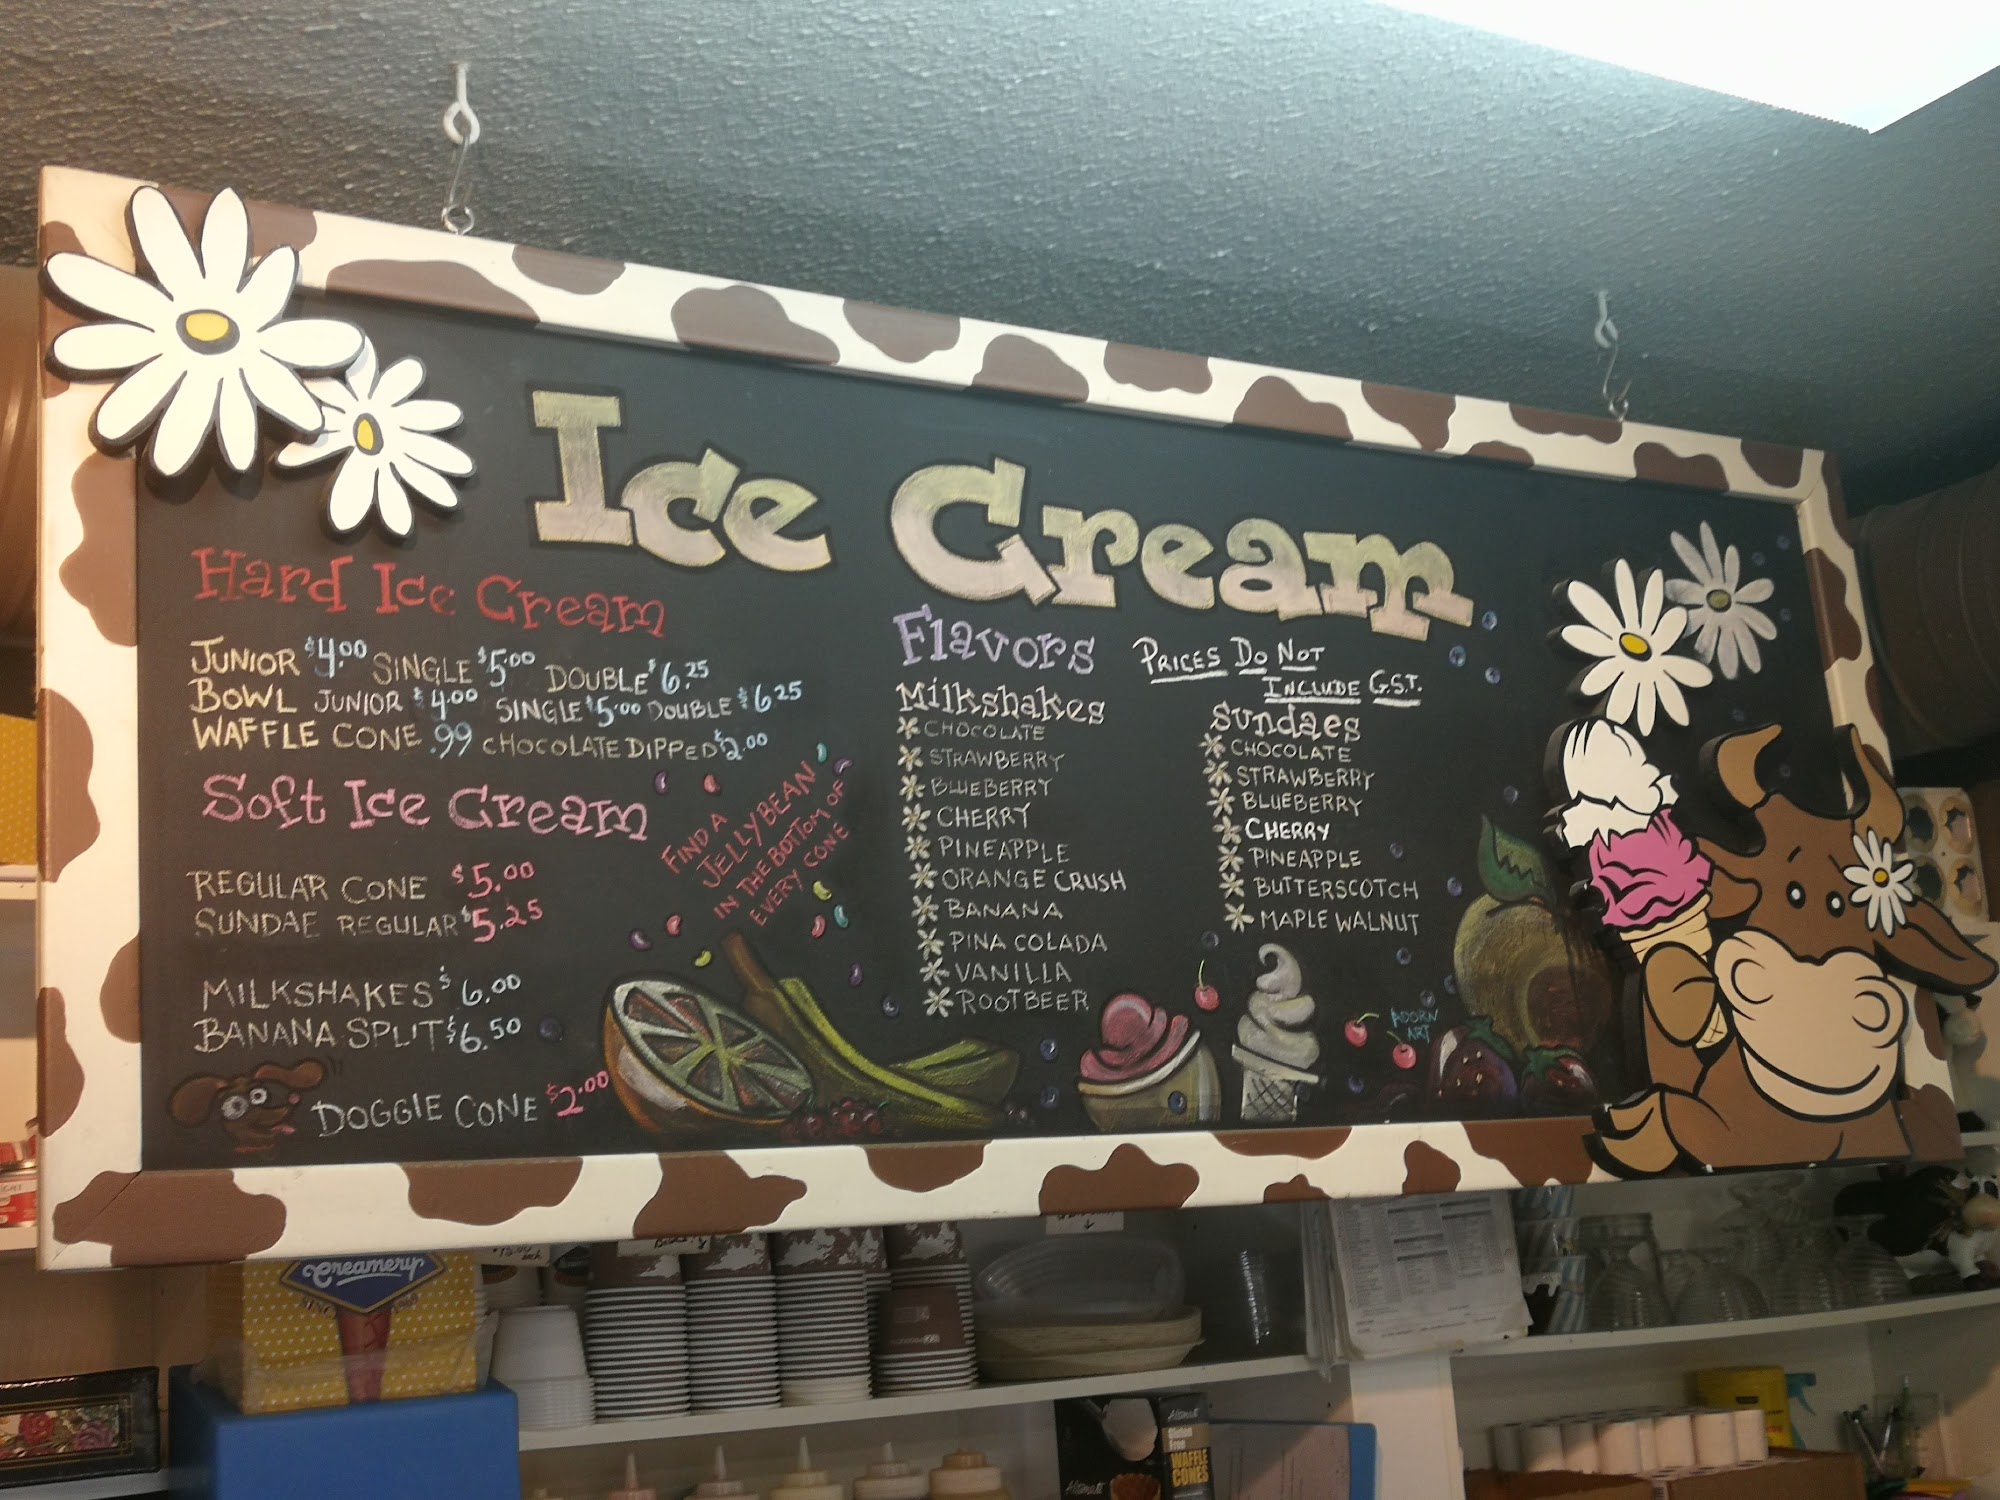 Ice Cream
Hard Ice Cream
JUNIOR $4.00 SINGLE $5.00 DOUBLE $6.25
BOWL JUNIOR $4.00 SINGLE $5.00 DOUBLE $6.25
WAFFLE CONE .99 CHOCOLATE DIPPED $2.00
Soft Ice Cream
REGULAR CONE $5.00
SUNDAE REGULAR $5.25
MILKSHAKES $6.00
BANANA SPLIT $6.50
DOGGIE CONE $2.00
FIND A
JELLYBEAN
IN THE BOTTOM OF
EVERY CONE
Flavors
PRICES DO NOT
INCLUDE G.S.T.
Milkshakes
CHOCOLATE
STRAWBERRY
BLUEBERRY
CHERRY
PINEAPPLE
ORANGE CRUSH
BANANA
PINA COLADA
VANILLA
ROOTBEER
Sundaes
CHOCOLATE
STRAWBERRY
BLUEBERRY
CHERRY
PINEAPPLE
BUTTERSCOTCH
MAPLE WALNUT
ADORN
ART
Creamery
SINCE 1969
Gluten
Free
WAFFLE
CONES